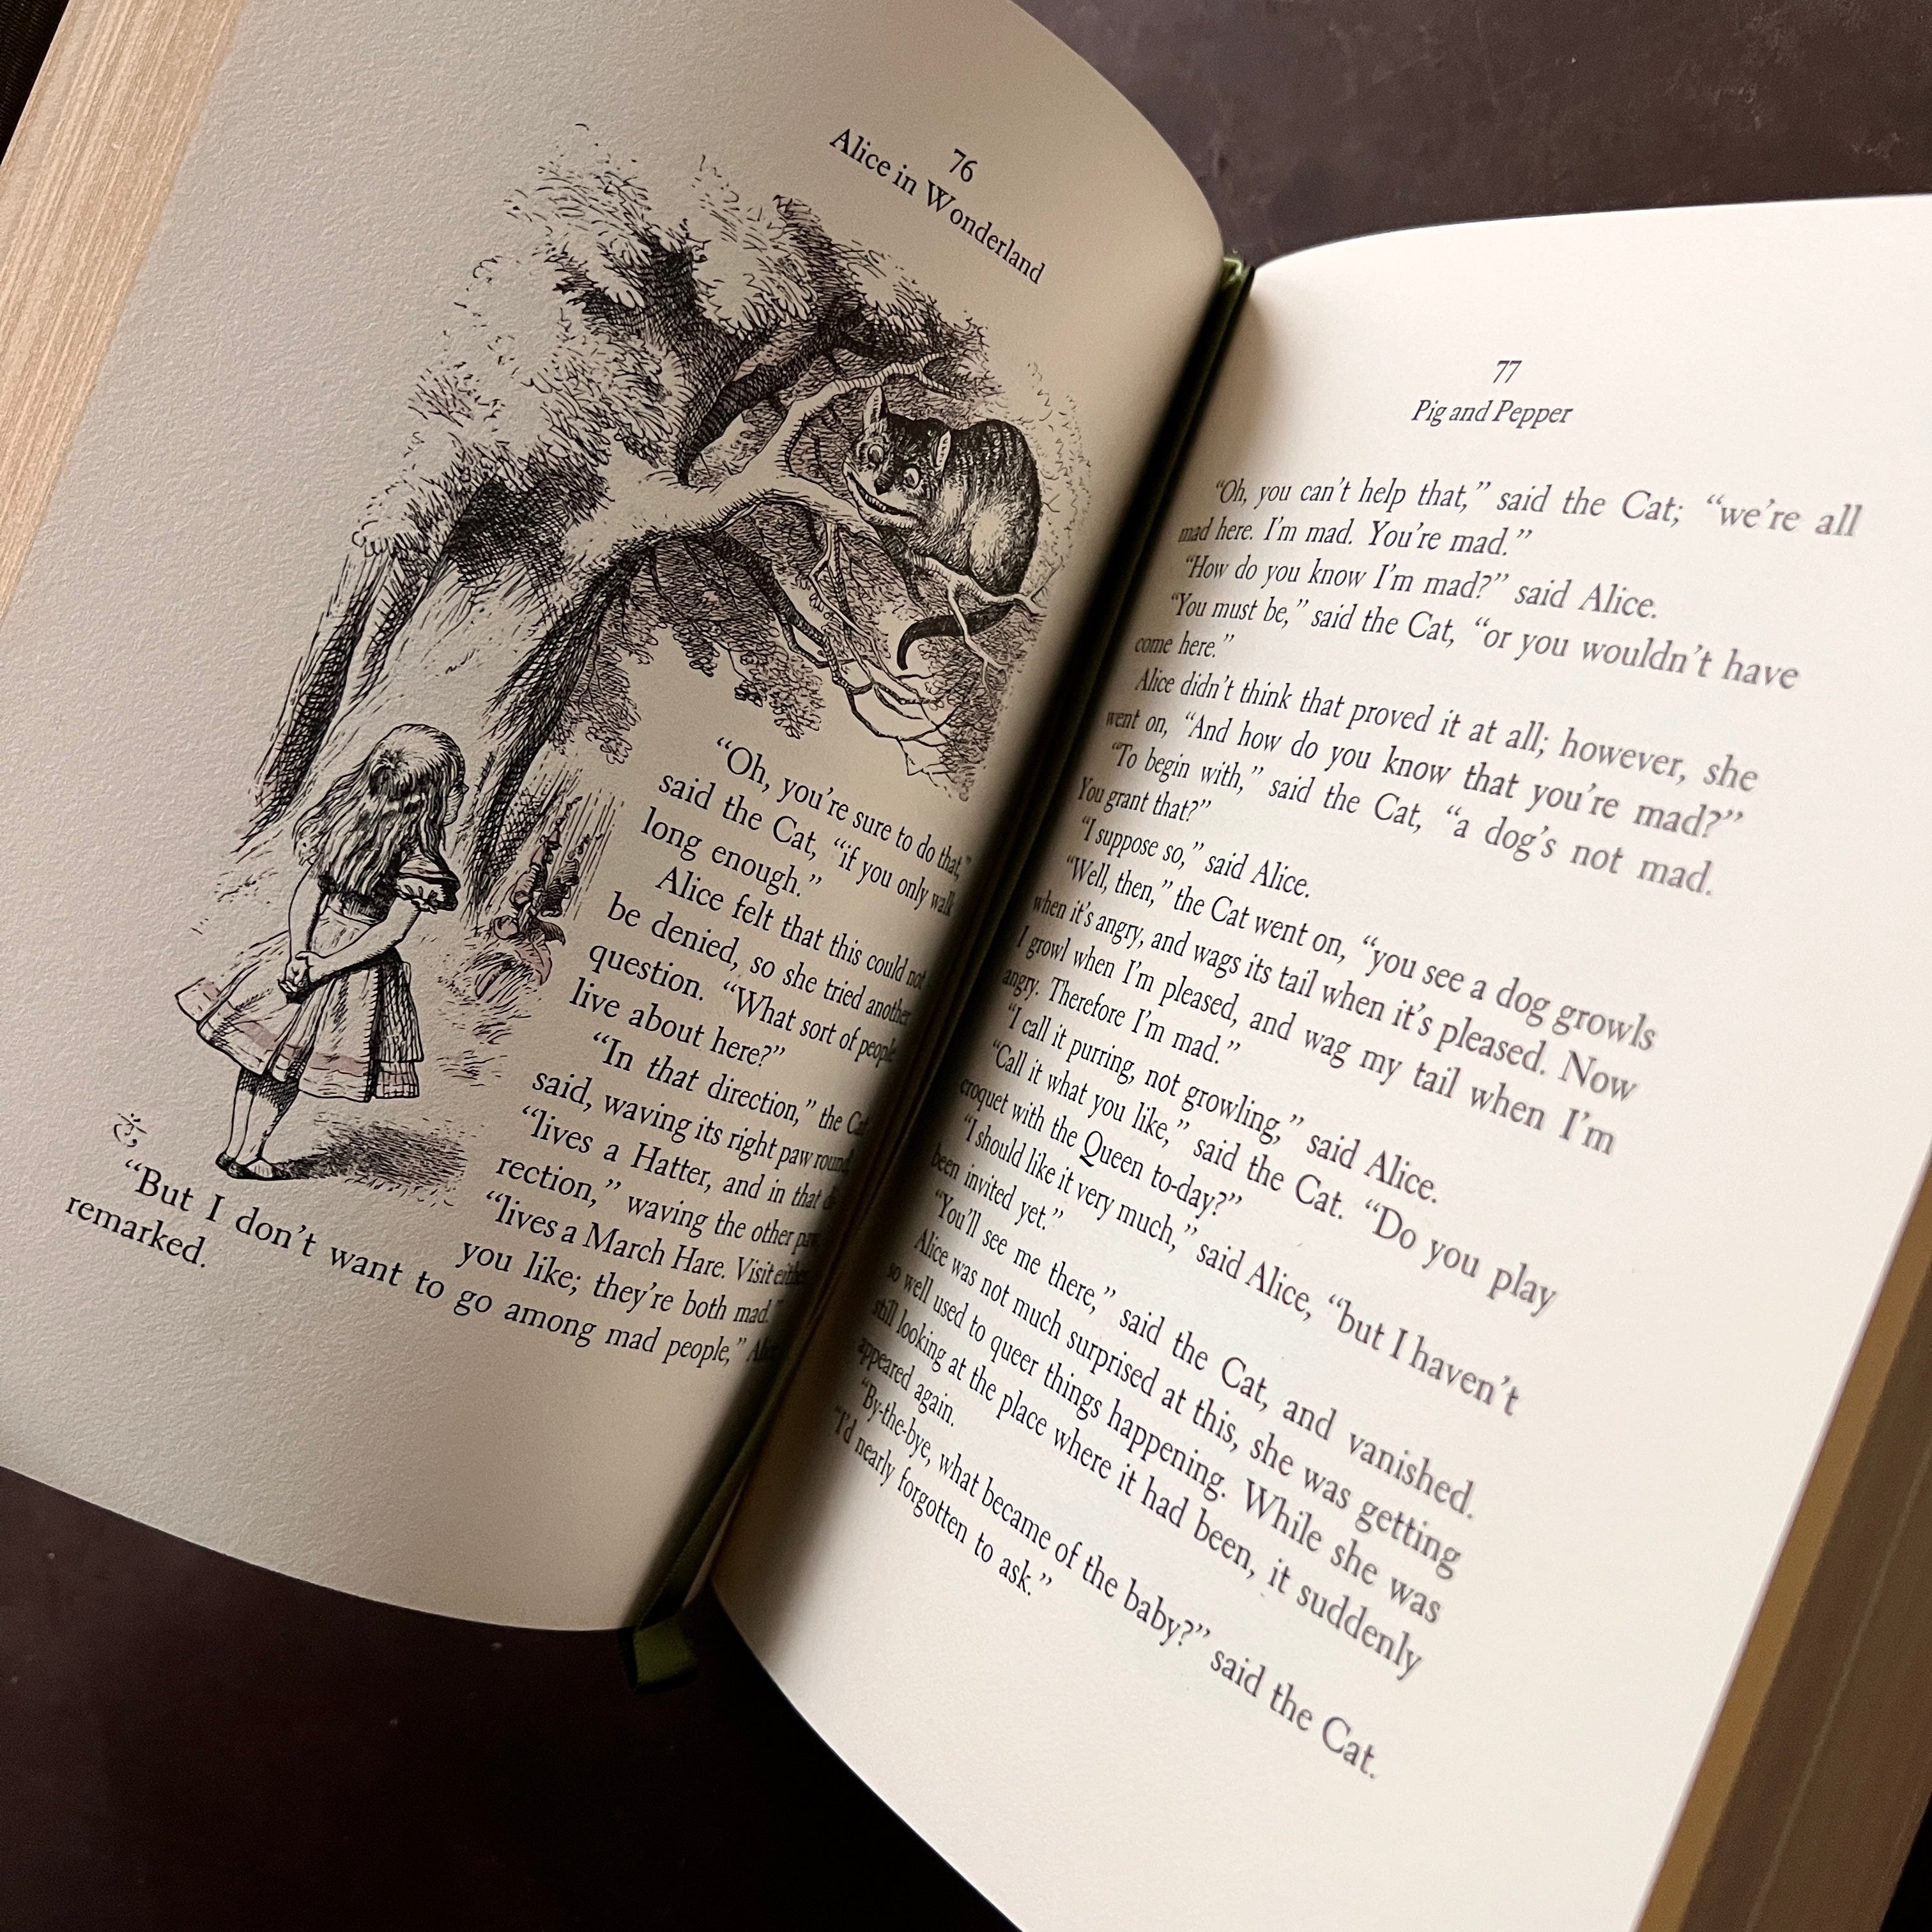 76
Alice in Wonderland
“Oh, you’re sure to do that,”
said the Cat, “if you only walk
long enough.”
Alice felt that this could not
be denied, so she tried another
question. “What sort of people
live about here?”
“In that direction,” the Cat
said, waving its right paw round,
“lives a Hatter, and in that di-
rection,” waving the other paw,
“lives a March Hare. Visit either
you like; they’re both mad.”
“But I don’t want to go among mad people,” Alice
remarked.
77
Pig and Pepper
“Oh, you can’t help that,” said the Cat; “we’re all
mad here. I’m mad. You’re mad.”
“How do you know I’m mad?” said Alice.
“You must be,” said the Cat, “or you wouldn’t have
come here.”
Alice didn’t think that proved it at all; however, she
went on, “And how do you know that you’re mad?”
“To begin with,” said the Cat, “a dog’s not mad.
You grant that?”
“I suppose so,” said Alice.
“Well, then,” the Cat went on, “you see a dog growls
when it’s angry, and wags its tail when it’s pleased. Now
I growl when I’m pleased, and wag my tail when I’m
angry. Therefore I’m mad.”
“I call it purring, not growling,” said Alice.
“Call it what you like,” said the Cat. “Do you play
croquet with the Queen to-day?”
“I should like it very much,” said Alice, “but I haven’t
been invited yet.”
“You’ll see me there,” said the Cat, and vanished.
Alice was not much surprised at this, she was getting
so well used to queer things happening. While she was
still looking at the place where it had been, it suddenly
appeared again.
“By-the-bye, what became of the baby?” said the Cat.
“I’d nearly forgotten to ask.”